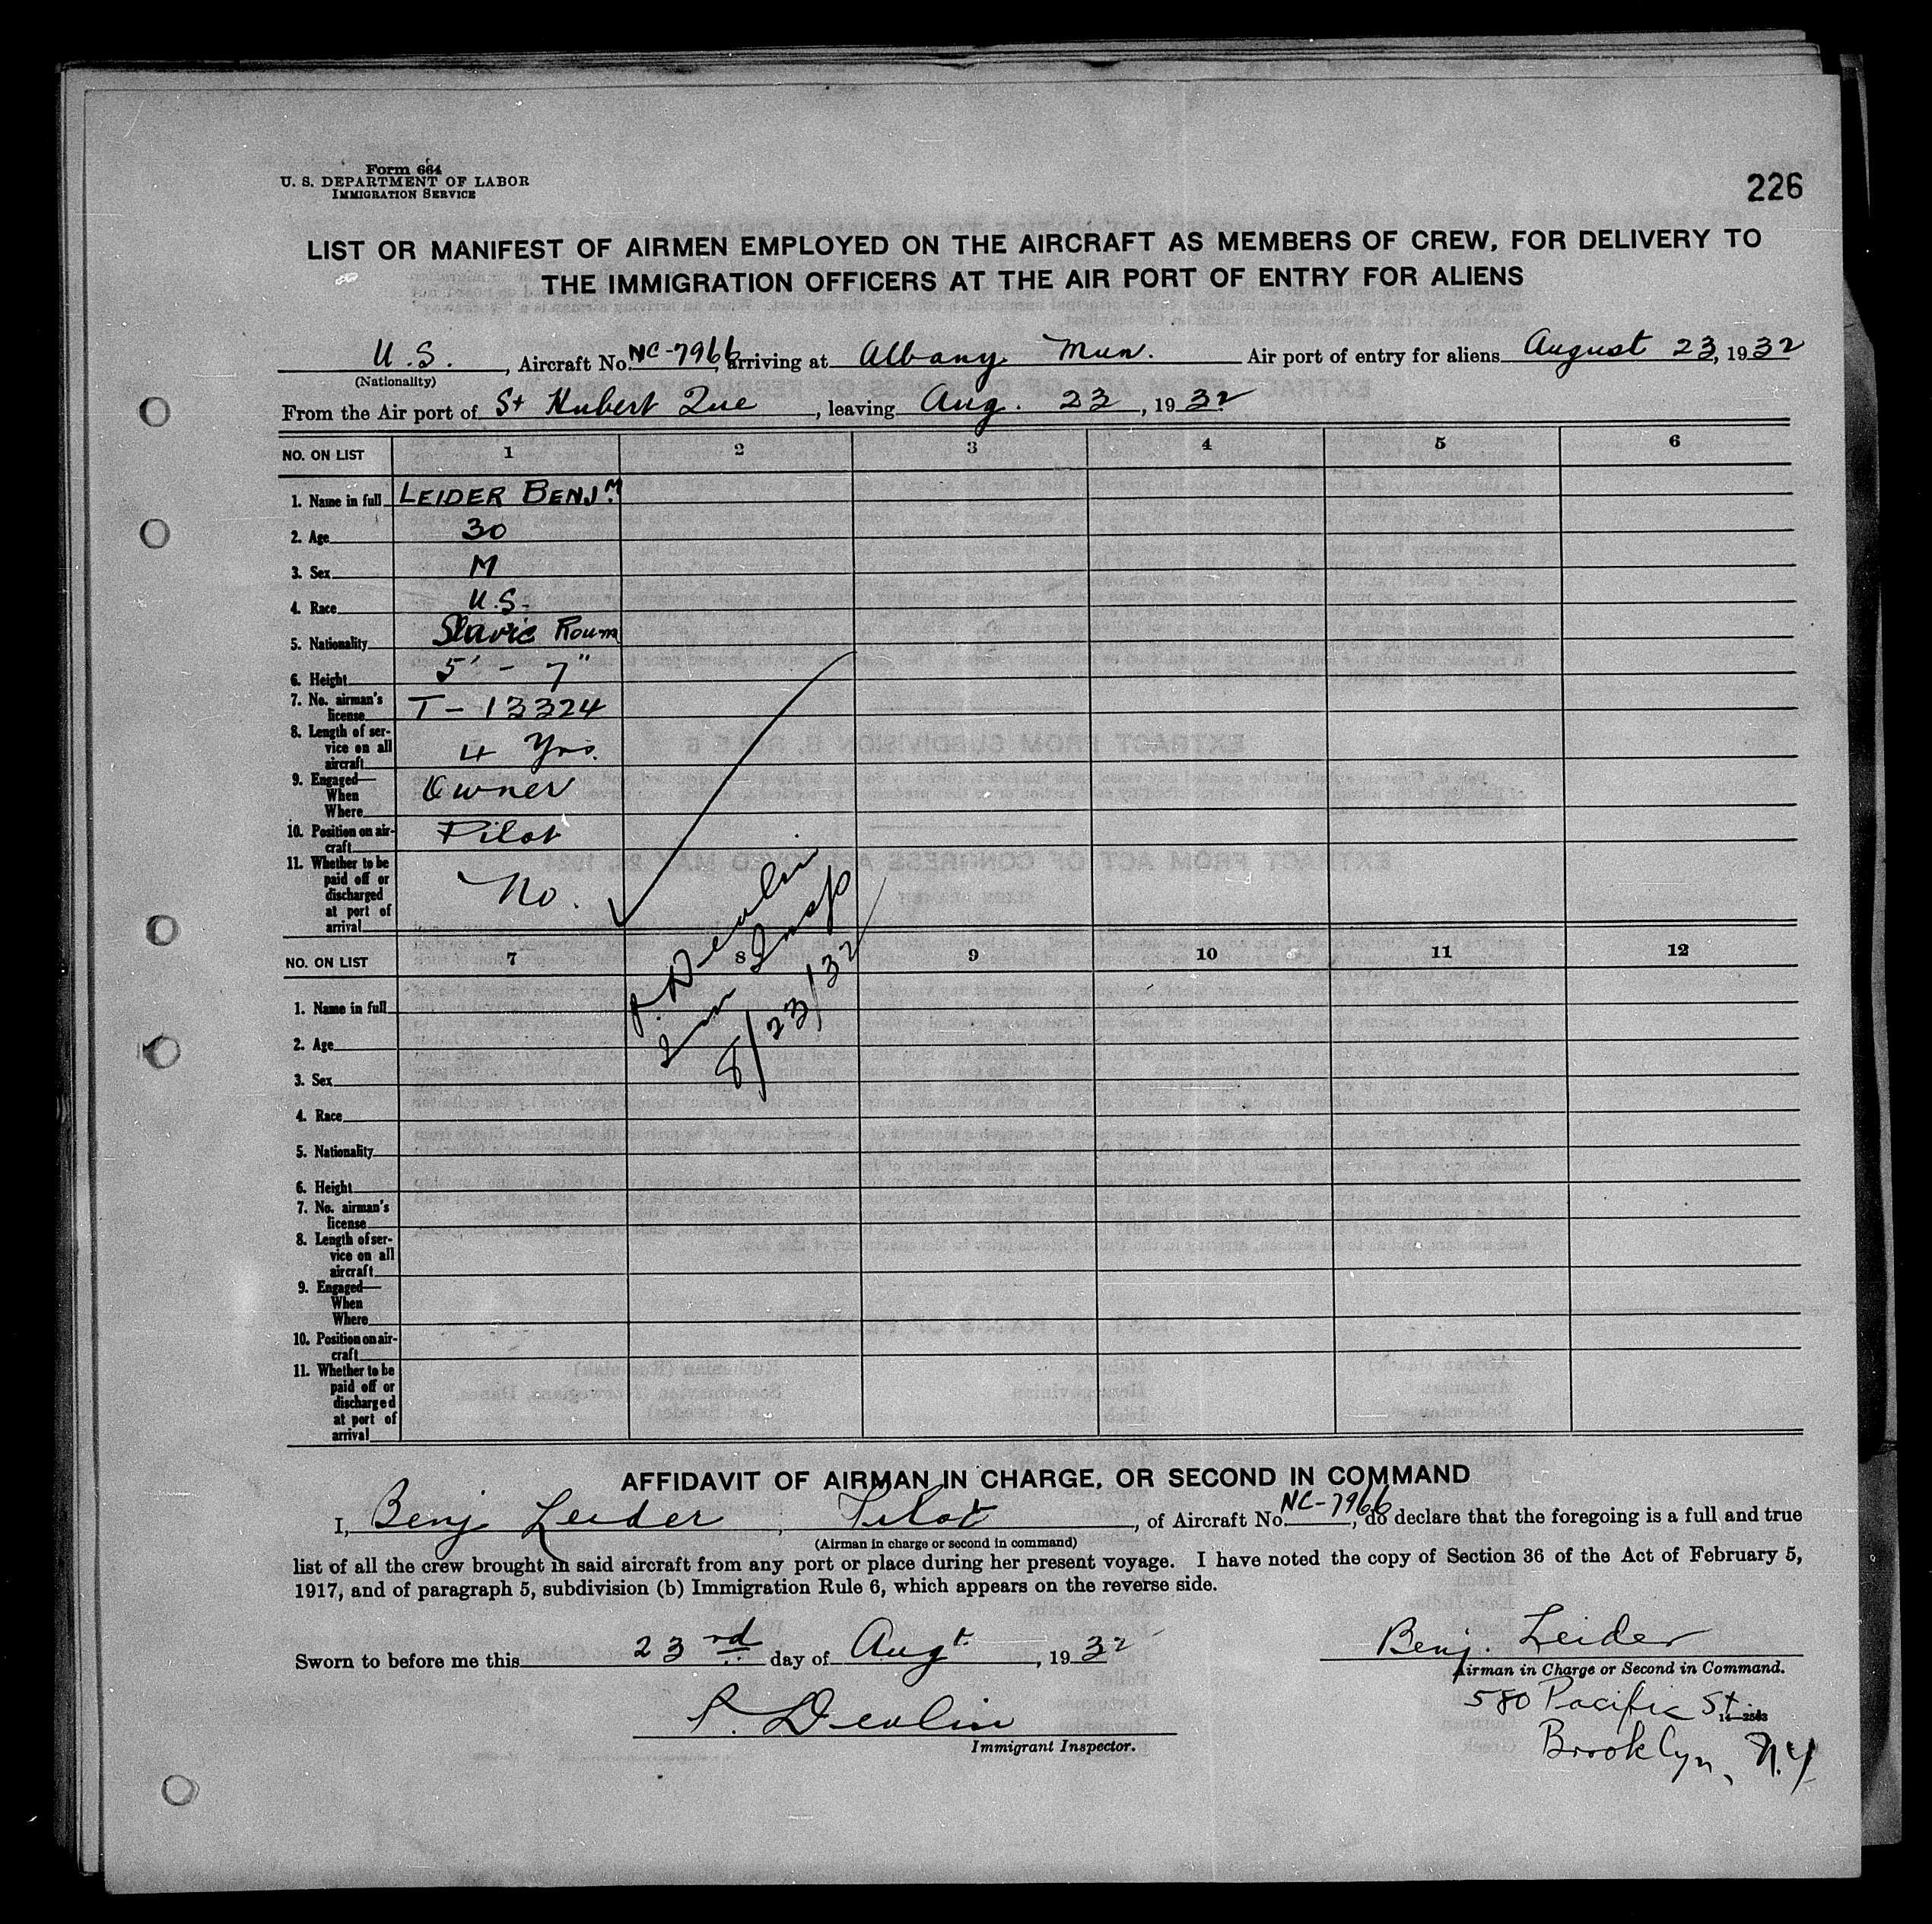 Form 664
U. S. DEPARTMENT OF LABOR
IMMIGRATION SERVICE
226
LIST OR MANIFEST OF AIRMEN EMPLOYED ON THE AIRCRAFT AS MEMBERS OF CREW, FOR DELIVERY TO
THE IMMIGRATION OFFICERS AT THE AIR PORT OF ENTRY FOR ALIENS
U.S. , Aircraft No. NC-7966, arriving at Albany Mun. Air port of entry for aliens August 23, 1932
(Nationality)
From the Air port of St Hubert Que , leaving Aug. 23 , 1932
NO. ON LIST 1 2 3 4 5 6
1. Name in full LEIDER BENJM
2. Age 30
3. Sex M
4. Race U.S.
5. Nationality Slavic Roum
6. Height 5' - 7"
7. No. airman's
license T-13324
8. Length of ser-
vice on all
aircraft 4 Yrs.
9. Engaged— Owner
When
Where
10. Position on air- Pilot
craft
11. Whether to be
paid off or
discharged No.
at port of
arrival
P. Devlin
Imm Insp
8/23/32
NO. ON LIST 7 8 9 10 11 12
1. Name in full
2. Age
3. Sex
4. Race
5. Nationality
6. Height
7. No. airman's
license
8. Length of ser-
vice on all
aircraft
9. Engaged—
When
Where
10. Position on air-
craft
11. Whether to be
paid off or
discharged
at port of
arrival
AFFIDAVIT OF AIRMAN IN CHARGE, OR SECOND IN COMMAND
I, Benj Leider , Pilot , of Aircraft No. NC-7966, do declare that the foregoing is a full and true
(Airman in charge or second in command)
list of all the crew brought in said aircraft from any port or place during her present voyage. I have noted the copy of Section 36 of the Act of February 5,
1917, and of paragraph 5, subdivision (b) Immigration Rule 6, which appears on the reverse side.
Sworn to before me this 23rd day of Augt , 1932
Benj. Leider
Airman in Charge or Second in Command.
P. Devlin
Immigrant Inspector.
580 Pacific St.
14—2563
Brooklyn, N.Y.